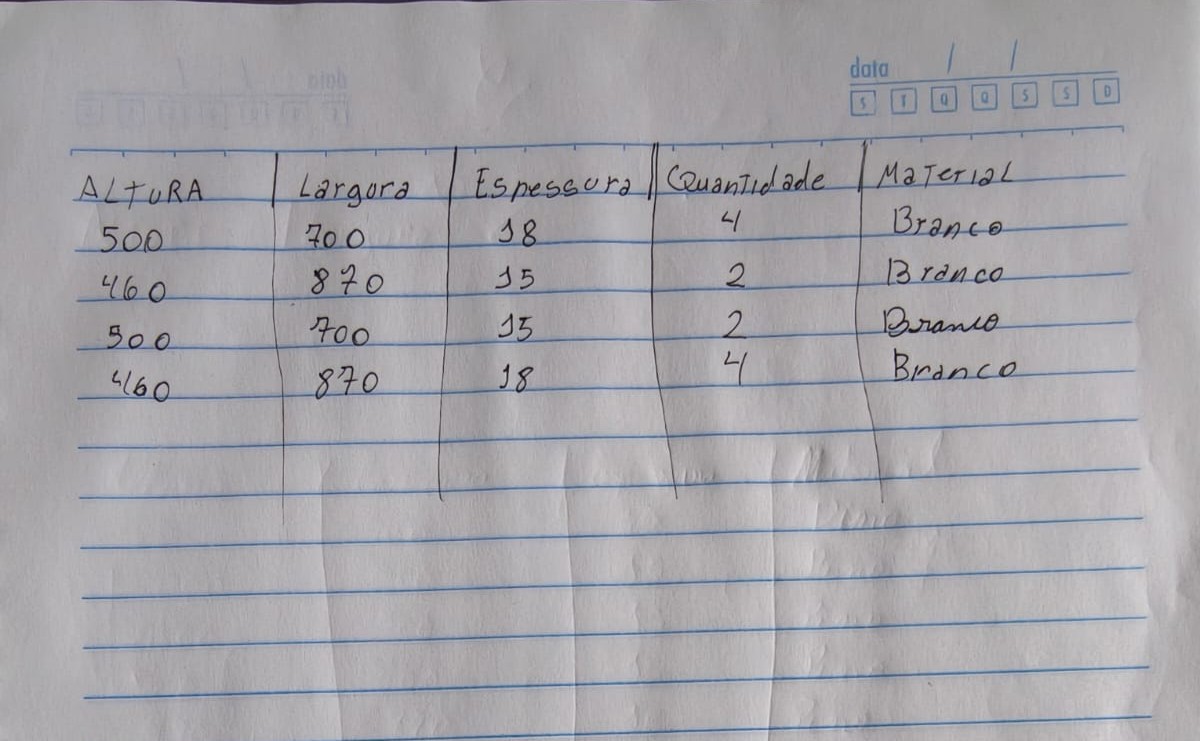 data / /
S T Q Q S S D
ALTURA Largura Espessura Quantidade Material
500 700 18 4 Branco
460 870 15 2 Branco
500 700 15 2 Branco
460 870 18 4 Branco